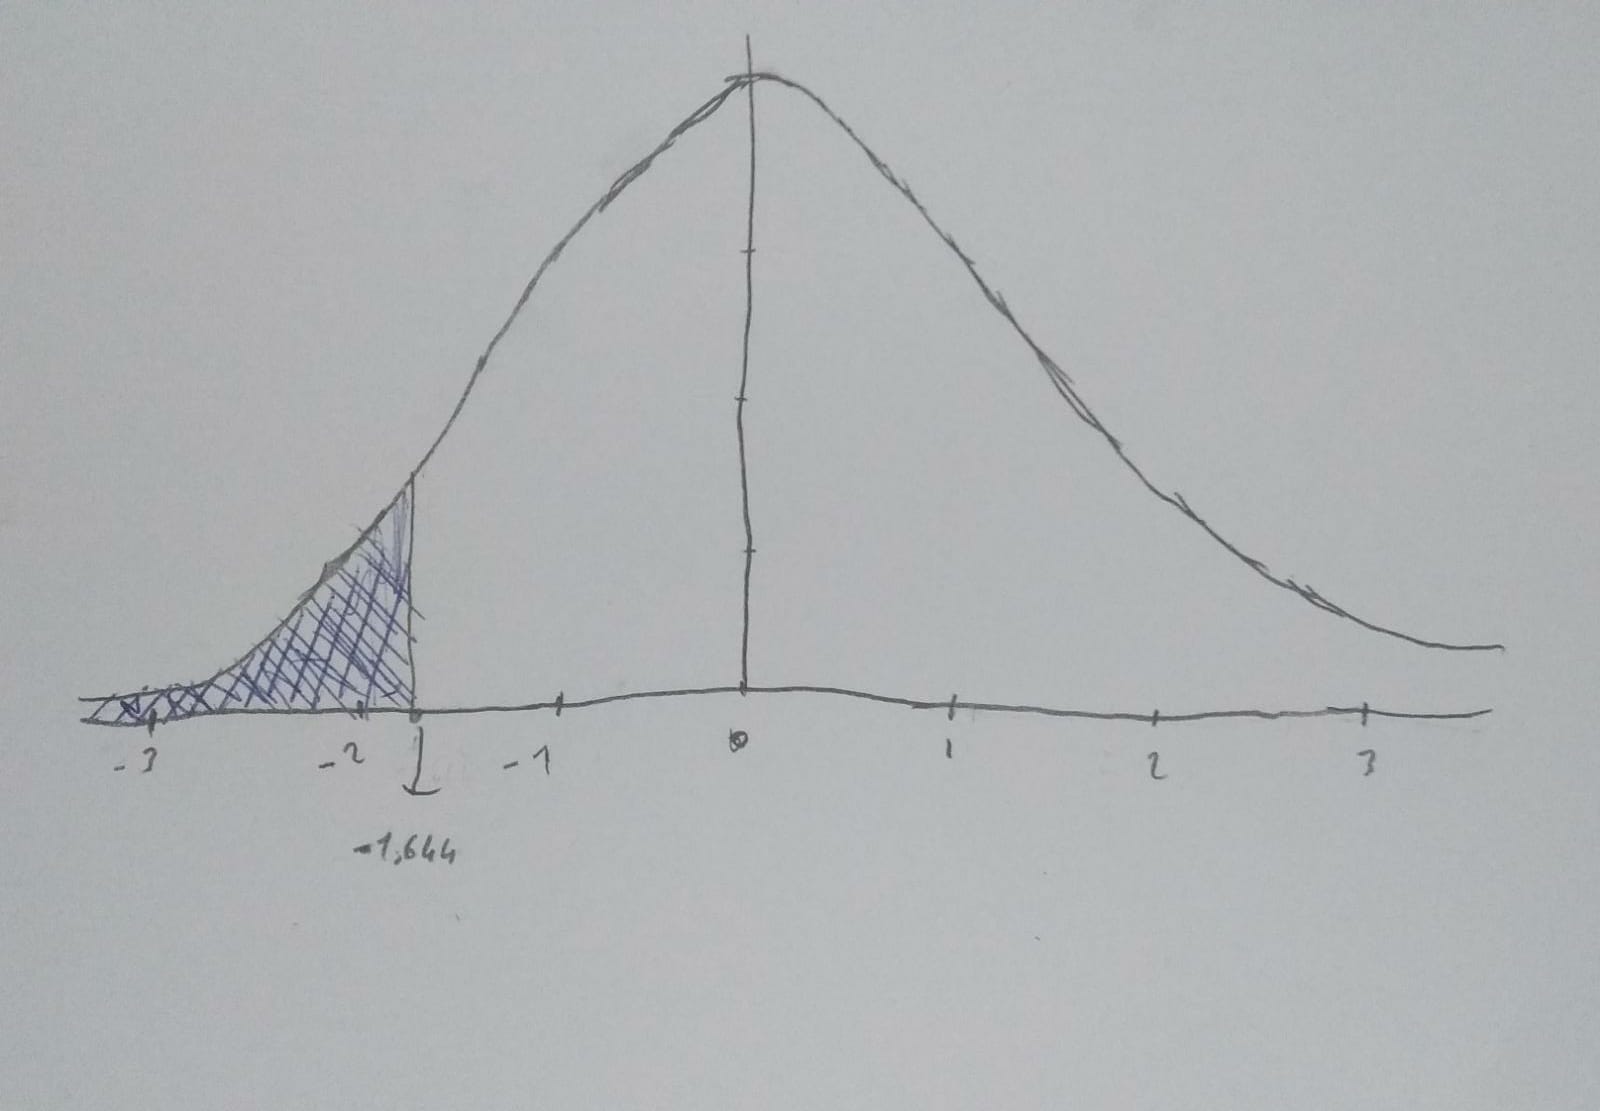 -3 -2 -1 0 1 2 3
-1,644